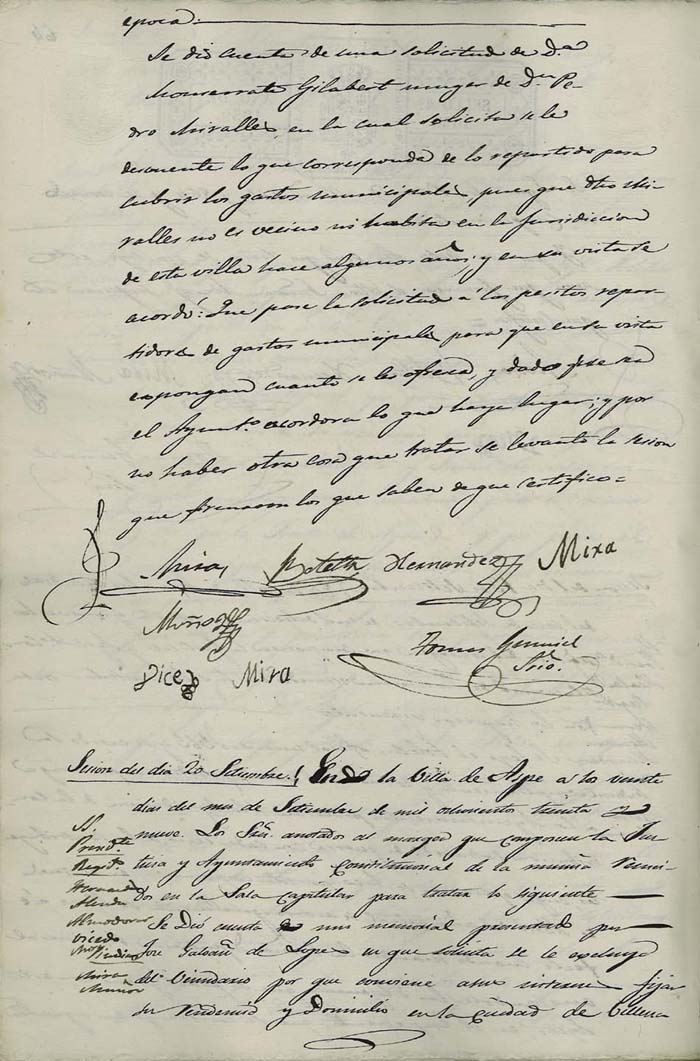 epoca.
Se dió cuenta de una solicitud de D.ª
Monserrate Gilabert muger de D.n Pe-
dro Miralles, en la cual solicita se le
descuente lo que corresponda de lo repartido para
cubrir los gastos municipales, pues que dho Mi-
ralles no es vecino ni habita en la Jurisdiccion
de esta villa hace algunos años; y en su vista se
acordó: Que pase la solicitud á los peritos repar-
tidores de gastos municipales para que en su vista
expongan cuanto se les ofresca, y dado q.e sea
el Ayunt.o acordara lo que haya lugar; y por
no haber otra cosa que tratar se levanto la sesion
que firmaron los que saben de que certifico=
Mira Botella Hernandez Mira
Muñoz
Tomas
Srio.
Dicedo Mira
Sesion del dia 20 Setiembre. En la Villa de Aspe a los veinte
dias del mes de Setiembre de mil ochocientos treinta
nueve. Los Sres. anotados al margen que componen la Jus-
ticia y Ayuntamiento Constitucional de la misma Reuni-
dos en la Sala capitular para tratar lo siguiente
S.
Presid.te
Regid.s
Hernandez
Almodovar
Vicedo
Mira
Muñoz
Se Dió cuenta de un memorial presentado por
Jose Galvañ de Lopez en que solicita se le excluya
del Vecindario por que conviene a sus intereses fijar
su Vecindad y Domicilio en la Ciudad de Villena